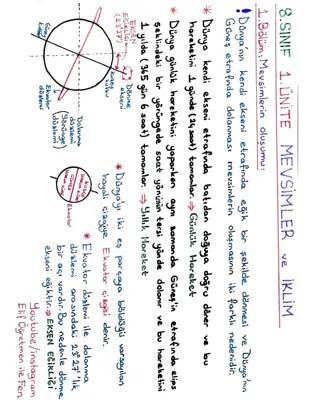 8.SINIF 1.ÜNİTE MEVSİMLER ve İKLİM
1.Bölüm: Mevsimlerin oluşumu:
! Dünya'nın kendi ekseni etrafında eğik bir şekilde dönmesi ve Dünya'nın
Güneş etrafında dolanması mevsimlerin oluşmasının iki farklı nedenidir.
* Dünya kendi ekseni etrafında batıdan doğuya doğru döner ve bu
hareketini 1 günde (24 saat) tamamlar. ⇒ Günlük Hareket
* Dünya günlük hareketini yaparken aynı zamanda Güneş'in etrafında elips
şeklindeki bir yörüngede saat yönünün tersi yönde dolanır ve bu hareketini
1 yılda (365 gün 6 saat) tamamlar. ⇒ Yıllık Hareket
EKSEN
EĞİKLİĞİ
(23°27')
Dönme
ekseni
Kuzey
Güney
Ekvator
düzlemi
Dolanma
düzlemi
(Yörünge
düzlemi)
* Dünya'yı iki eş parçaya böldüğü varsayılan
hayali çizgiye Ekvator çizgisi denir.
Ekvator
* Ekvator düzlemi ile dolanma
düzlemi arasındaki 23°27' lık
bir açı vardır. Bu nedenle dönme
ekseni eğiktir. ⇒ EKSEN EĞİKLİĞİ
Youtube/instagram
Elif Öğretmen ile Fen